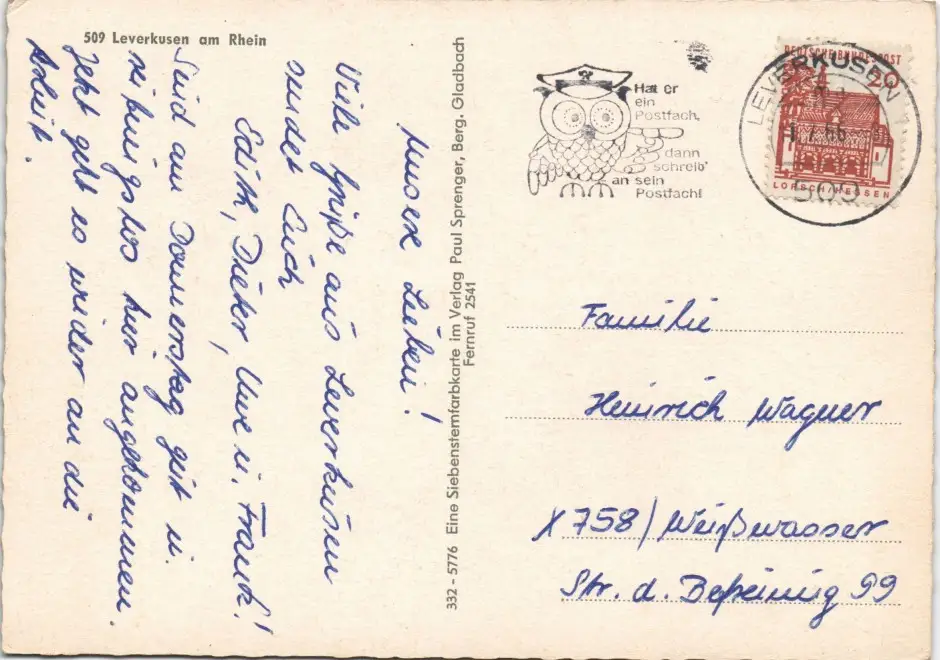 509 Leverkusen am Rhein
Unsere Lieben!
Viele Grüße aus Leverkusen
sendet Euch
Edith, Dieter, Uwe u. Frank!
Sind am Donnerstag gut u.
reibungslos hier angekommen.
Jetzt geht es wieder an die
Arbeit.
332 - 5776 Eine Siebensternfarbkarte im Verlag Paul Sprenger, Berg. Gladbach
Fernruf 2541
Hat er
ein
Postfach,
dann
schreib'
an sein
Postfach!
LEVERKUSEN
7.66
509
DEUTSCHE BUNDESPOST
20
LORSCH/HESSEN
Familie
Heinrich Wagner
X 758/ Weißwasser
Str. d. Befreiung 99